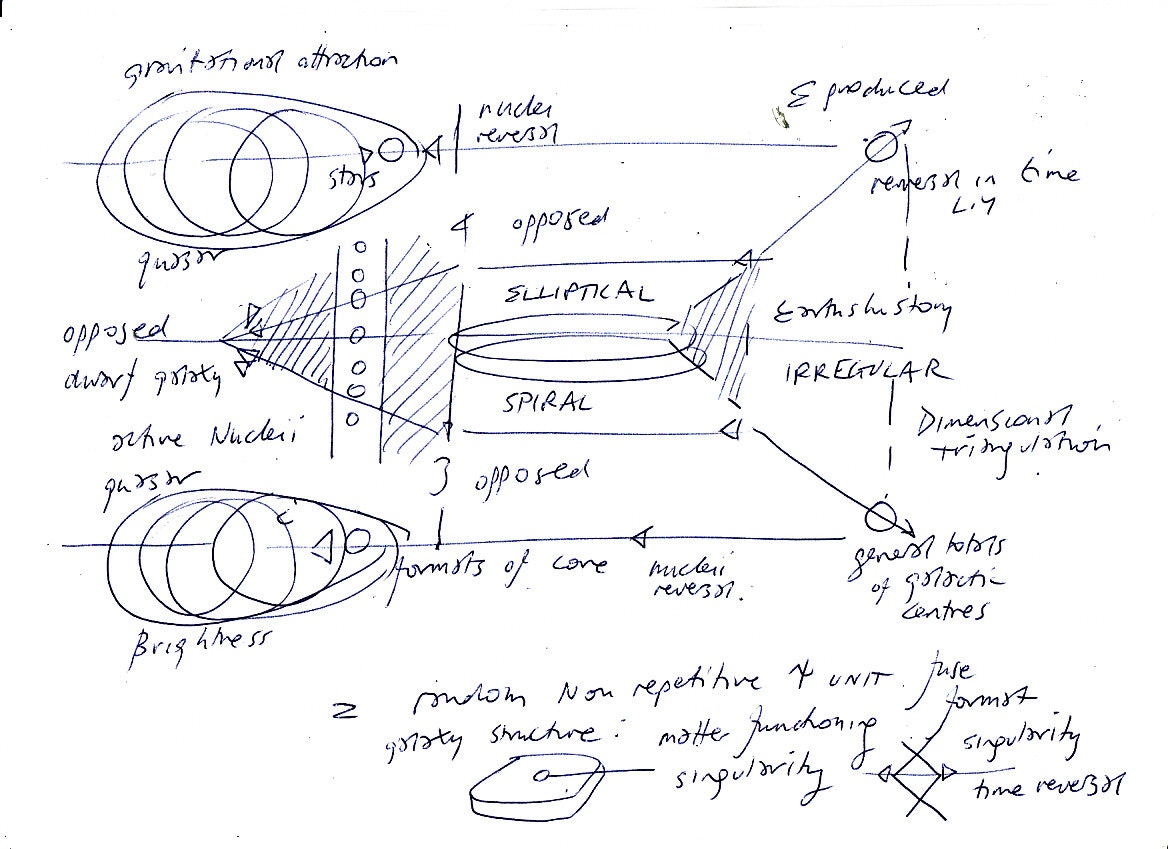 gravitational attraction
Σ produced
nuclei
reversal
stars
reversal in time
L.Y
quasar
4 opposed
ELLIPTICAL
opposed
dwarf galaxy
Earths history
IRREGULAR
SPIRAL
active Nucleii
Dimensional
triangulation
quasar
3 opposed
formats of core
nucleii
reversal.
general totals
of galactic
centres
Brightness
= random Non repetitive 4 UNIT. fuse
galaxy structure: matter functioning
format
singularity
singularity
time reversal